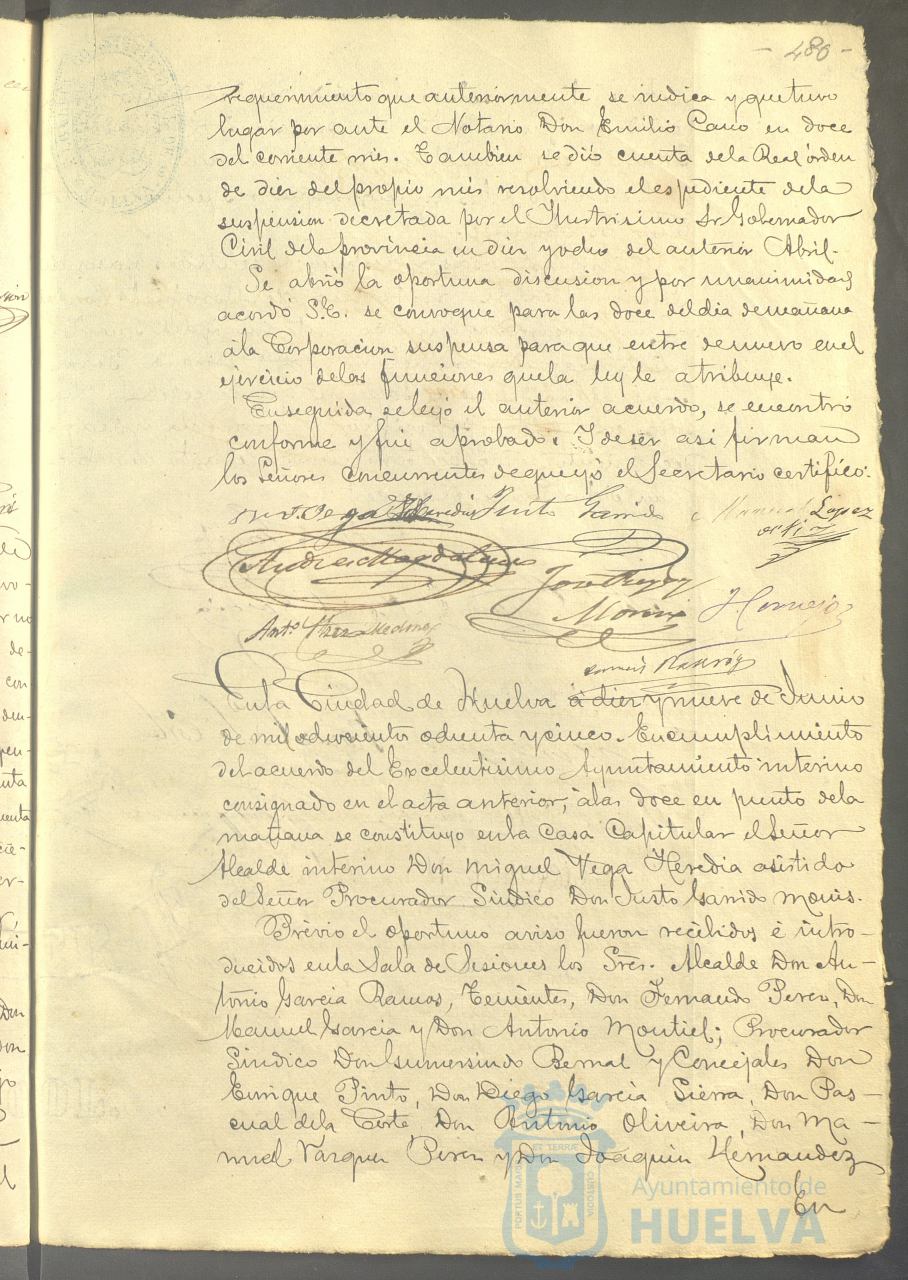 - 480 -
requerimiento que anteriormente se indica y que tuvo
lugar por ante el Notario Don Emilio Cano en doce
del corriente mes. Tambien se dió cuenta de la Real órden
de diez del propio mes resolviendo el espediente de la
suspension decretada por el Ilustrisimo Sr Gobernador
Civil de la provincia en diez y ocho del anterior Abril.
Se abrió la oportuna discusion y por unanimidad
acordó S.E. se convoque para las doce del dia de mañana
á la Corporacion suspensa para que entre de nuevo en el
ejercicio de las funciones que la ley le atribuye.
Enseguida se leyó el anterior acuerdo, se encontró
conforme y fué aprobado. I de ser asi firman
los Señores concurrentes de que yo el Secretario certifico.
Vega Heredia Justo Garrido Manuel Lopez
Andres Magdaleno
Jose
Moreno J. Cornejo
Anto Medina
En la Ciudad de Huelva á diez y nueve de Junio
de mil ochocientos ochenta y cinco. En cumplimiento
del acuerdo del Excelentisimo Ayuntamiento interino
consignado en el acta anterior, á las doce en punto de la
mañana se constituyo en la Casa Capitular el Señor
Alcalde interino Don Miguel Vega Heredia asistido
del Señor Procurador Sindico Don Justo Garrido Monis.
Prévio el oportuno aviso fueron recibidos é intro-
ducidos en la Sala de Sesiones los Sres. Alcalde Don An-
tonio Garcia Ramos, Tenientes, Don Fernando Perez, Don
Manuel Garcia y Don Antonio Montiel; Procurador
Sindico Don Gumersindo Bernal y Concejales Don
Enrique Pinto, Don Diego Garcia Sierra, Don Pas-
cual de la Corte, Don Antonio Oliveira, Don Ma-
nuel Vazquez Perez y Don Joaquin Hernandez
En
Ayuntamiento de
HUELVA